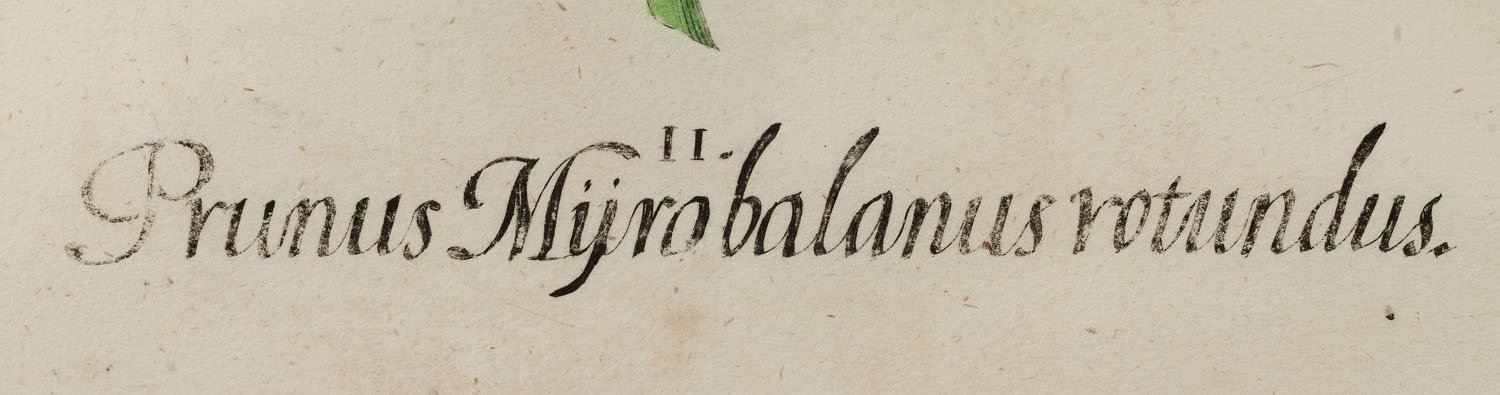 II.
Prunus Mijrobalanus rotundus.